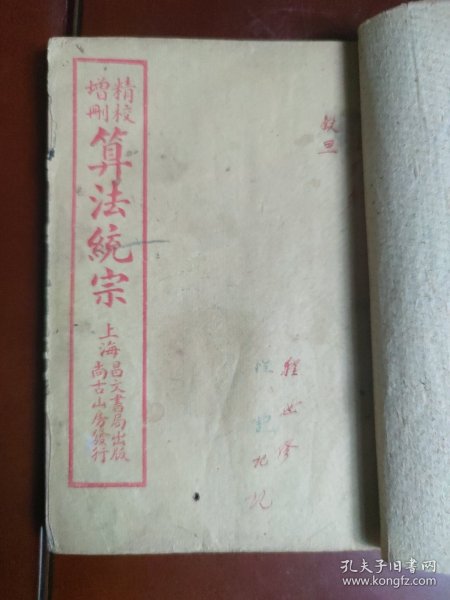 精校
增刪
算法統宗
上海
昌文書局出版
尚古山房發行
孔夫子旧书网
www.kongfz.com